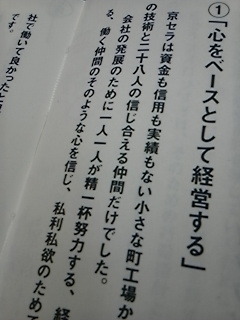 ①「心をベースとして経営する」
京セラは資金も信用も実績もない小さな町工場か
の技術と二十八人の信じ合える仲間だけでした。
会社の発展のために一人一人が精一杯努力する、経
る、働く仲間のそのような心を信じ、私利私欲のためで
社で働いて良かったと
です。